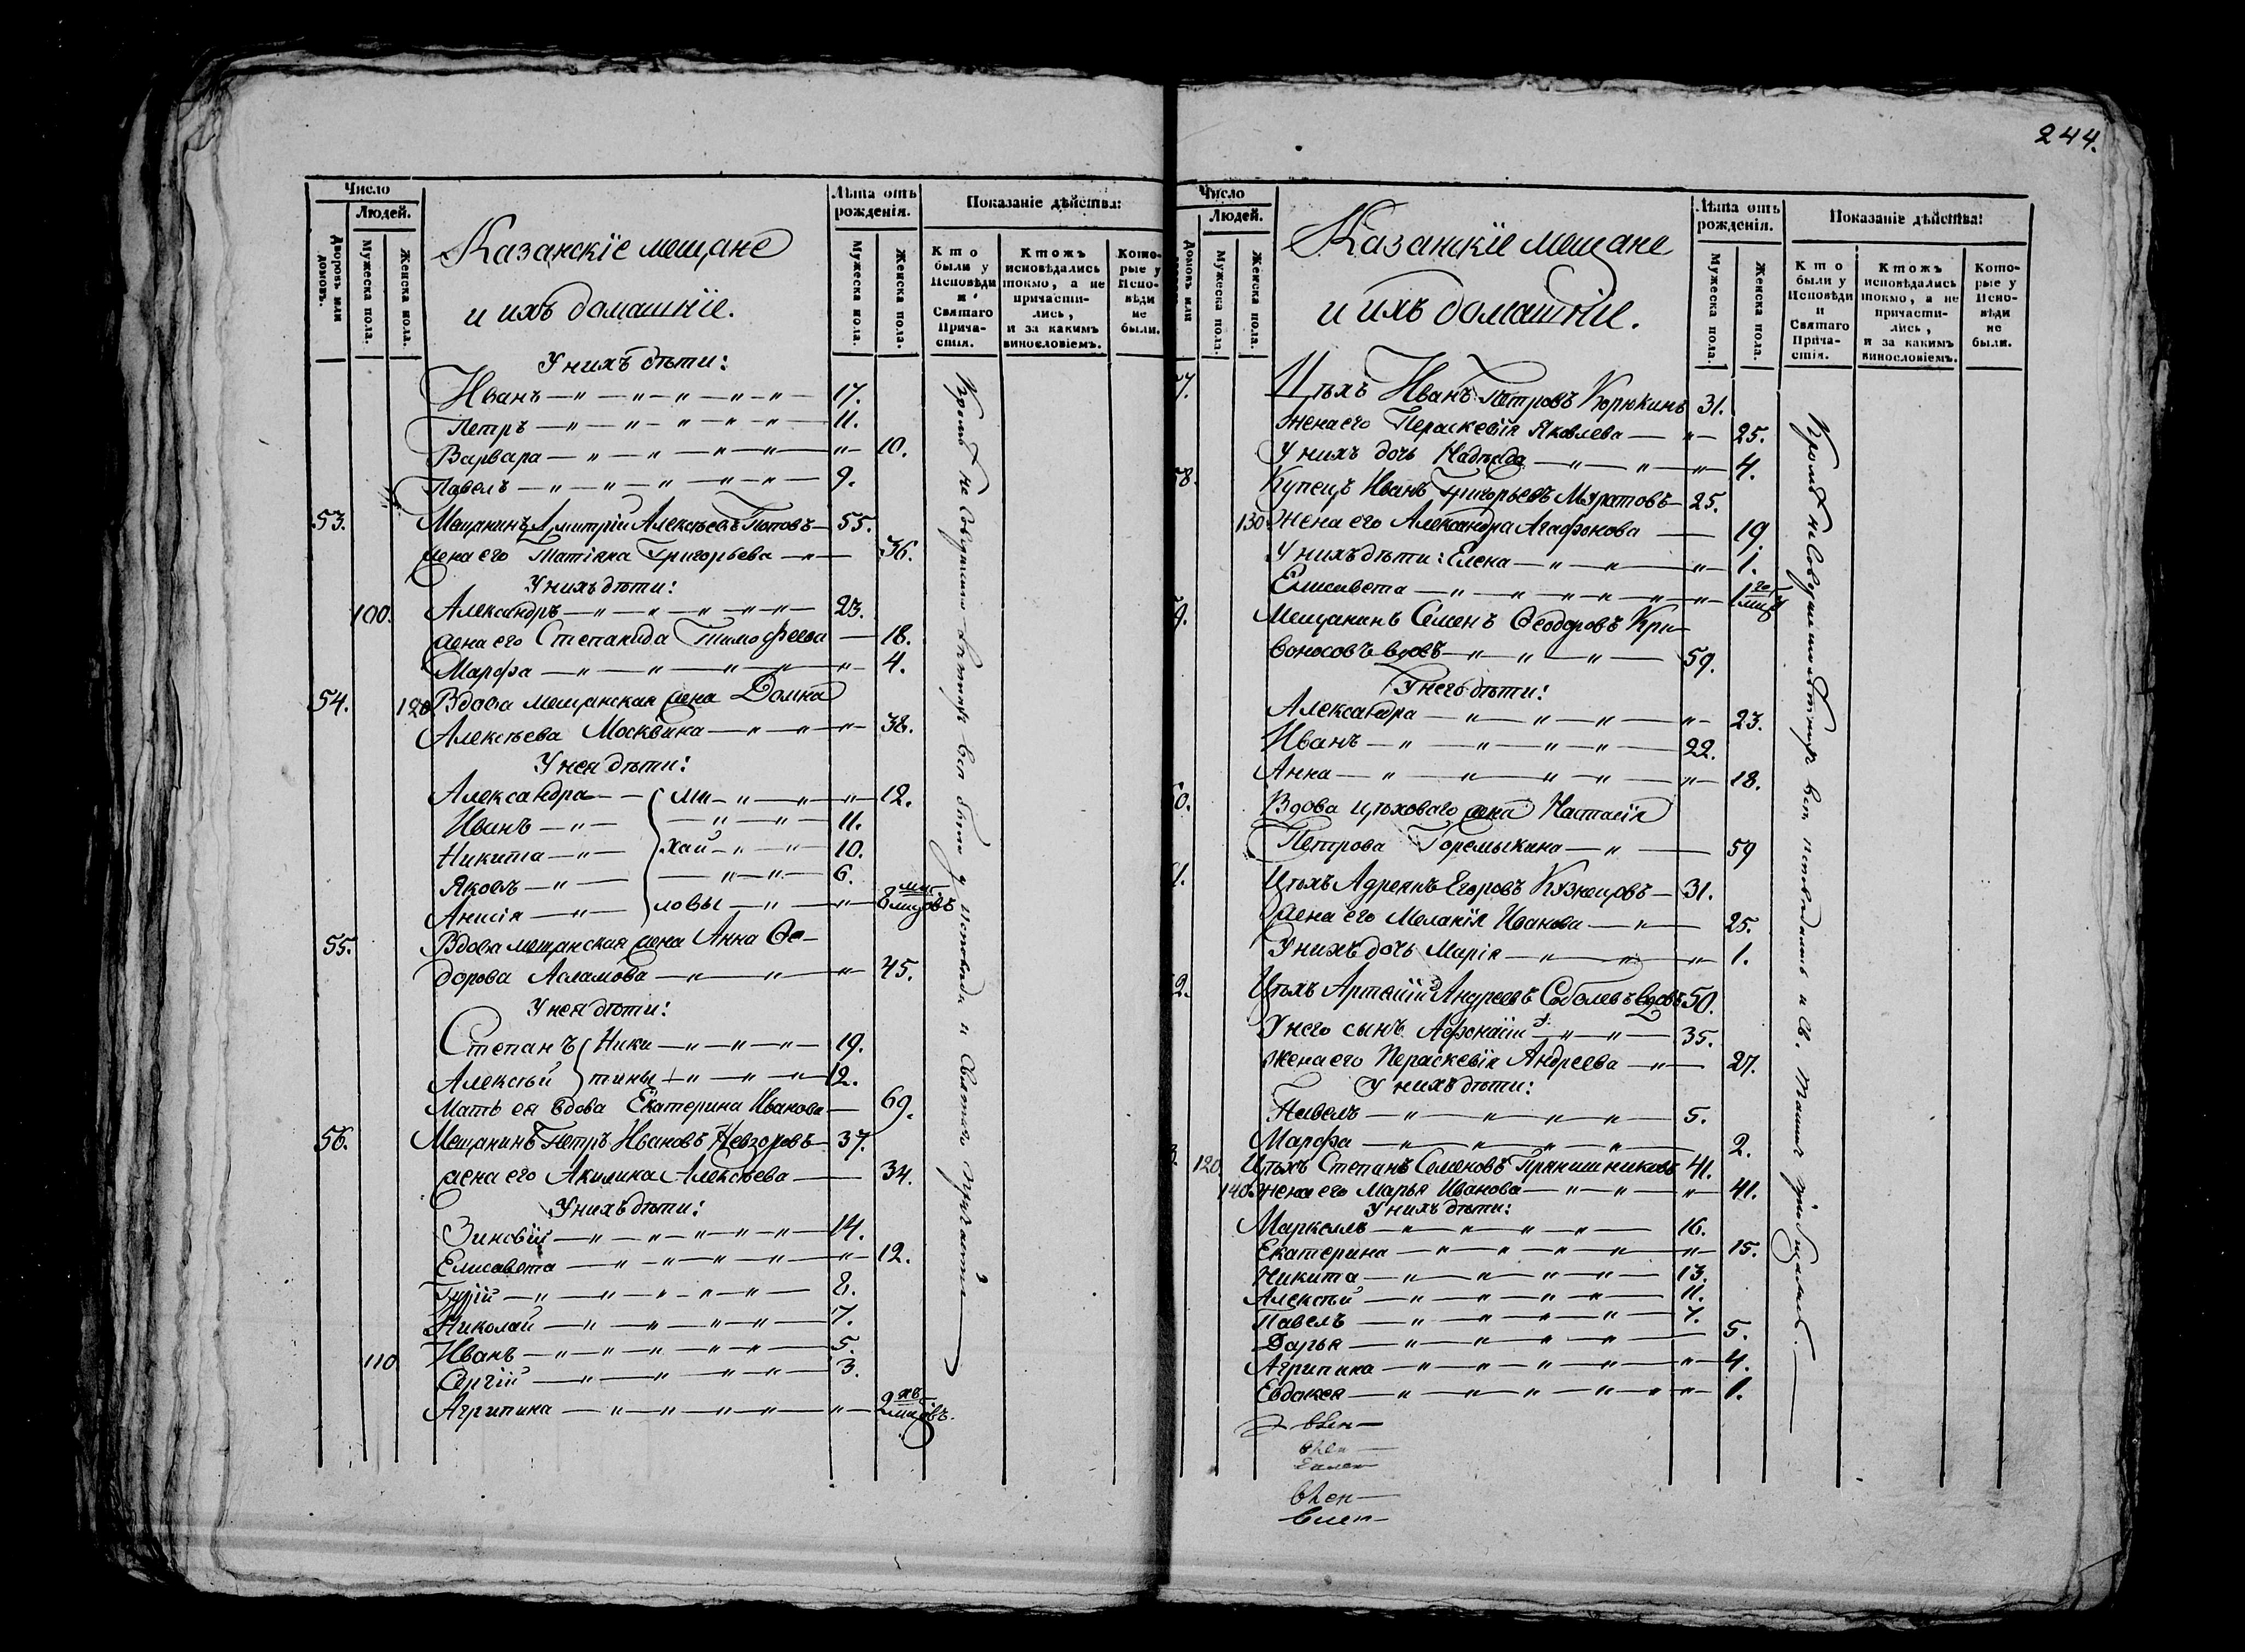 244.
Число
Людей.
Дворовъ или домовъ.
Мужеска пола.
Женска пола.
Казанскіе мещане
и ихъ домашніе.
Лѣта отъ рожденія.
Мужеска пола.
Женска пола.
Показаніе дѣйства:
Кто были у Исповѣди и Святаго Причастія.
Ктожъ исповѣдались токмо, а не причастились, и за какимъ винословіемъ.
Которые у Исповѣди не были.
У нихъ дѣти:
Иванъ — " — " — " — " — " — 17.
Петръ — " — " — " — " — " — 11.
Варвара — " — " — " — " — " — 10.
Павелъ — " — " — " — " — " — 9.
53. Мещанинъ Димитрій Алексѣевъ Поповъ — 55.
жена его Татіяна Григорьева — " — 36.
У нихъ дѣти:
100. Александръ — " — " — " — " — " — 23.
жена его Степанида Тимофеева — 18.
Марфа — " — " — " — " — " — 4.
54. 120 Вдова мещанская жена Домна
Алексѣева Москвина — " — " — " — 38.
У нея дѣти:
Александра — Ми — " — " — " — 12.
Иванъ — " — " — " — 11.
Никита — " — хай — " — " — 10.
Яковъ — " — " — " — 6.
Анисія — " — ловы — " — " — 8 мѣсяцовъ
55. Вдова мещанская жена Анна Ѳе-
дорова Асламова — " — " — 45.
У нея дѣти:
Степанъ Ники — " — " — " — 19.
Алексѣй тины — " — " — " — 12.
Мать ея вдова Екатерина Иванова — 69.
56. Мещанинъ Петръ Ивановъ Невзоровъ — 37.
жена его Акилина Алексѣева — 34.
У нихъ дѣти:
Зиновій — " — " — " — " — " — 14.
Елисавета — " — " — " — " — " — 12.
Гурій — " — " — " — " — " — 8.
Николай — " — " — " — " — 7.
110. Иванъ — " — " — " — " — " — 5.
Сергій — " — " — " — " — 3.
Агрипина — " — " — " — " — " — 2 мѣсяцовъ.
Число
Людей.
домовъ или
Мужеска пола.
Женска пола.
Казанскіе мещане
и ихъ домашніе.
Лѣта отъ рожденія.
Мужеска пола.
Женска пола.
Показаніе дѣйства:
Кто были у Исповѣди и Святаго Причастія.
Ктожъ исповѣдались токмо, а не причастились, и за какимъ винословіемъ.
Которые у Исповѣди не были.
7. Цѣхъ Иванъ Петровъ Корюкинъ 31.
Жена его Пераскевія Яковлева — " — 25.
У нихъ дочь Надежда — " — " — " — 4.
58. Купецъ Иванъ Григорьевъ Муратовъ — 25.
130 Жена его Александра Агафонова — 19.
У нихъ дѣти: Елена — " — " — " — 1.
Елисавета — " — " — " — " — " — 1
9. Мещанинъ Семенъ Ѳеодоровъ Кри-
воносовъ вдовъ — " — " — " — 59.
У него дѣти:
Александра — " — " — " — " — 23.
Иванъ — " — " — " — " — 22.
Анна — " — " — " — " — " — 18.
60. Вдова цѣховаго жена Настасія
Петрова Горемыкина — " — 59
1. Цѣхъ Адреянъ Егоровъ Кузнецовъ — 31.
жена его Меланія Иванова — " — 25.
У нихъ дочь Марія — " — " — " — 1.
2. Цѣхъ Артемій Андреевъ Соболевъ вдовъ 50.
У него сынъ Афонасій — " — " — 35.
жена его Пераскевія Андреева — " — 27.
У нихъ дѣти:
Павелъ — " — " — " — " — 5.
Марфа — " — " — " — " — 2.
3. 120 Цѣхъ Степанъ Семеновъ Прянишниковъ 41.
140. Жена его Марья Иванова — " — " — " — 41.
У нихъ дѣти:
Маркеллъ — " — " — " — " — 16.
Екатерина — " — " — " — " — " — 15.
Никита — " — " — " — " — 13.
Алексѣй — " — " — " — " — 11.
Павелъ — " — " — " — " — " — 7.
Дарья — " — " — " — " — 5.
Агрипина — " — " — " — " — " — 4.
Евдокея — " — " — " — " — " — " — 1.